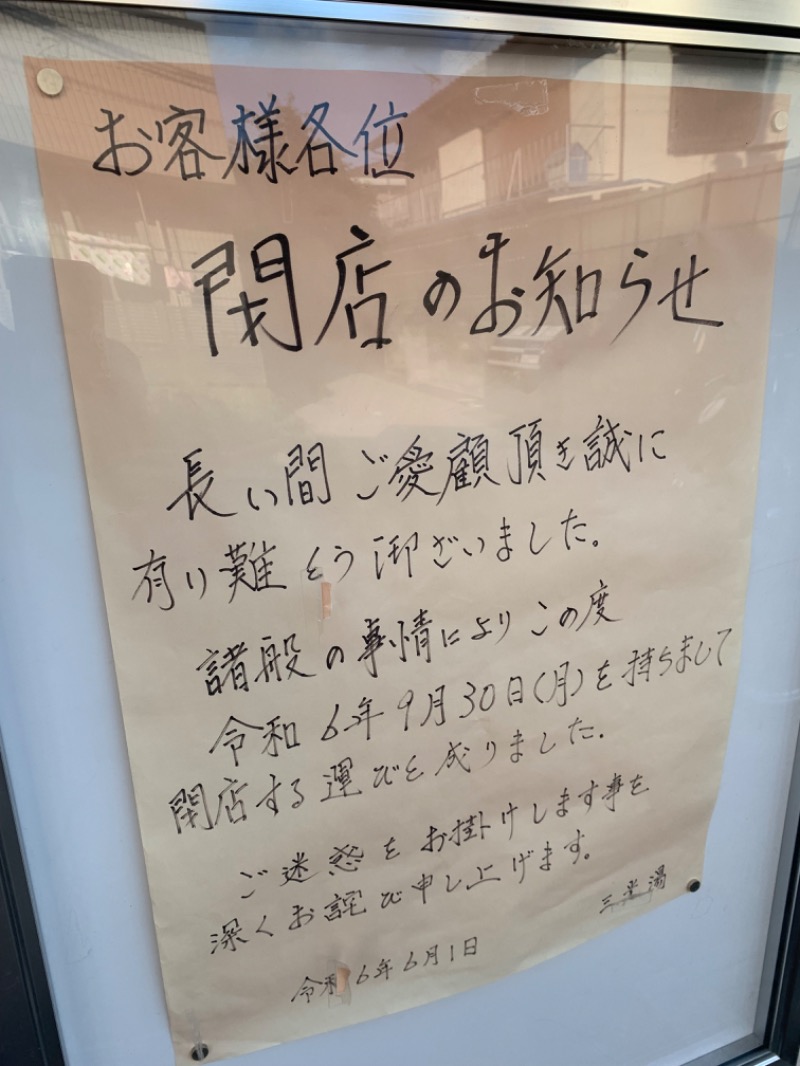 お客様各位
閉店のお知らせ
長い間ご愛顧頂き誠に
有り難とう御ざいました。
諸般の事情によりこの度
令和6年9月30日(月)を持ちまして
閉店する運びと成りました.
ご迷惑をお掛けします事を
深くお詫び申し上げます。
三光湯
令和6年6月1日